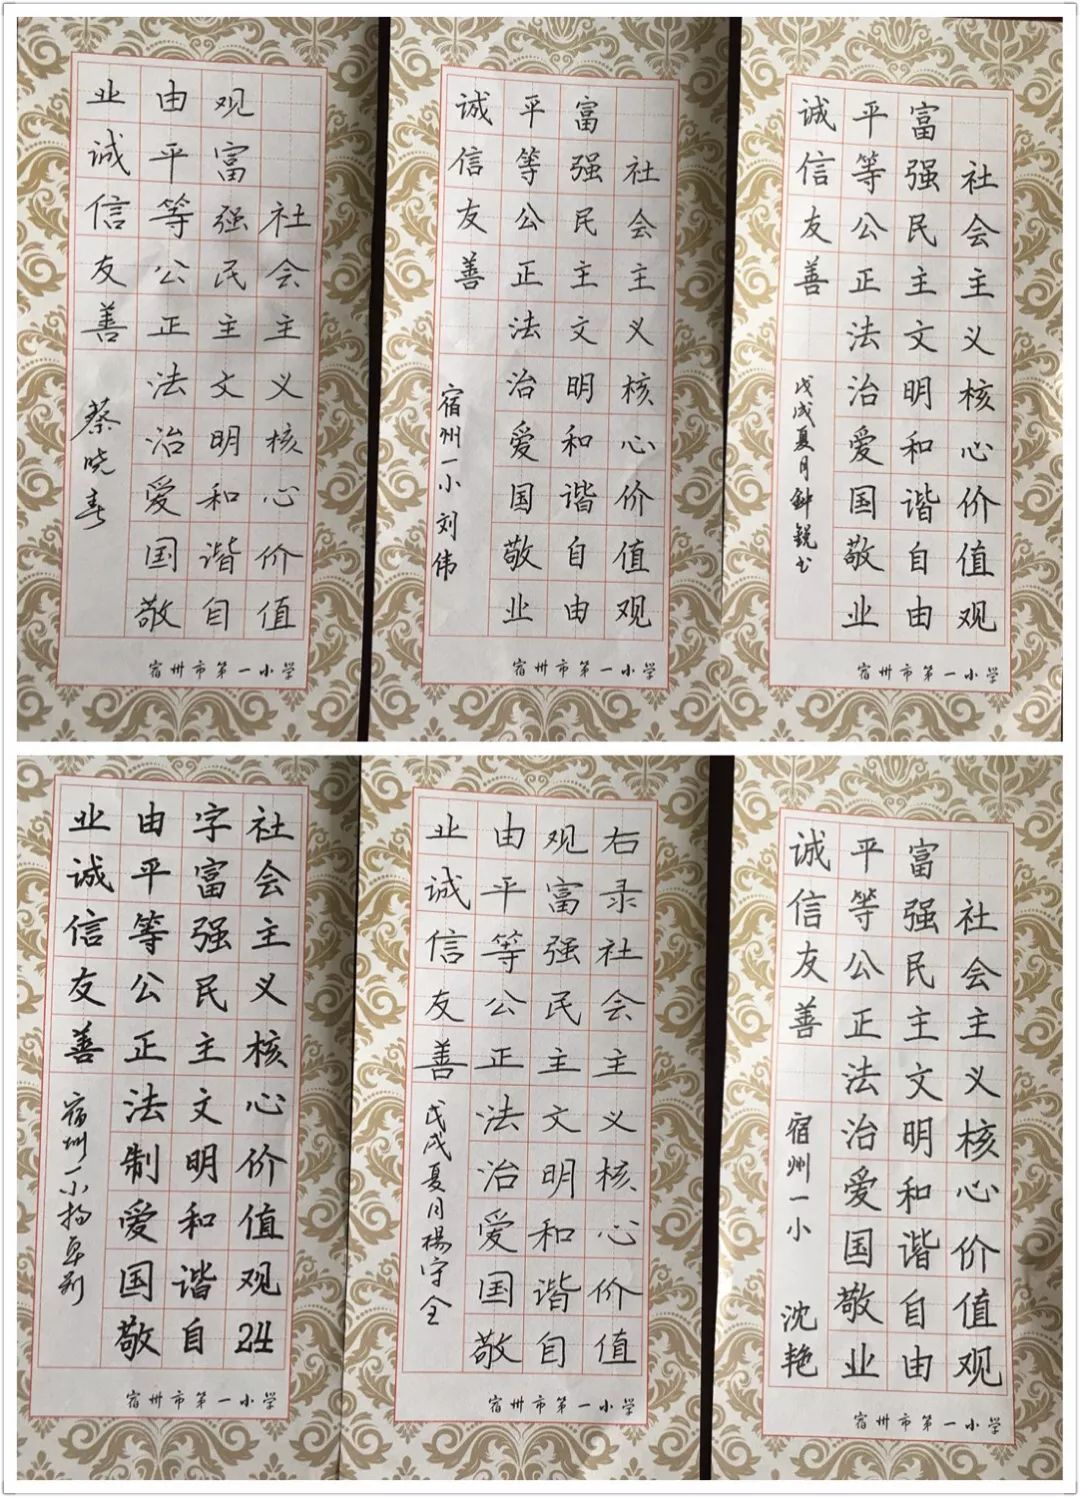 社会主义核心价值
观富强民主文明和谐自
由平等公正法治爱国敬
业诚信友善 蔡晓春
宿州市第一小学
社会主义核心价值观
富强民主文明和谐自由
平等公正法治爱国敬业
诚信友善 宿州一小刘伟
宿州市第一小学
社会主义核心价值观
富强民主文明和谐自由
平等公正法治爱国敬业
诚信友善 戊戌夏月钟锐书
宿州市第一小学
社会主义核心价值观24
字富强民主文明和谐自
由平等公正法制爱国敬
业诚信友善 宿州一小杨
宿州市第一小学
右录社会主义核心价值
观富强民主文明和谐自
由平等公正法治爱国敬
业诚信友善 戊戌夏月楊守全
宿州市第一小学
社会主义核心价值观
富强民主文明和谐自由
平等公正法治爱国敬业
诚信友善 宿州一小 沈艳
宿州市第一小学